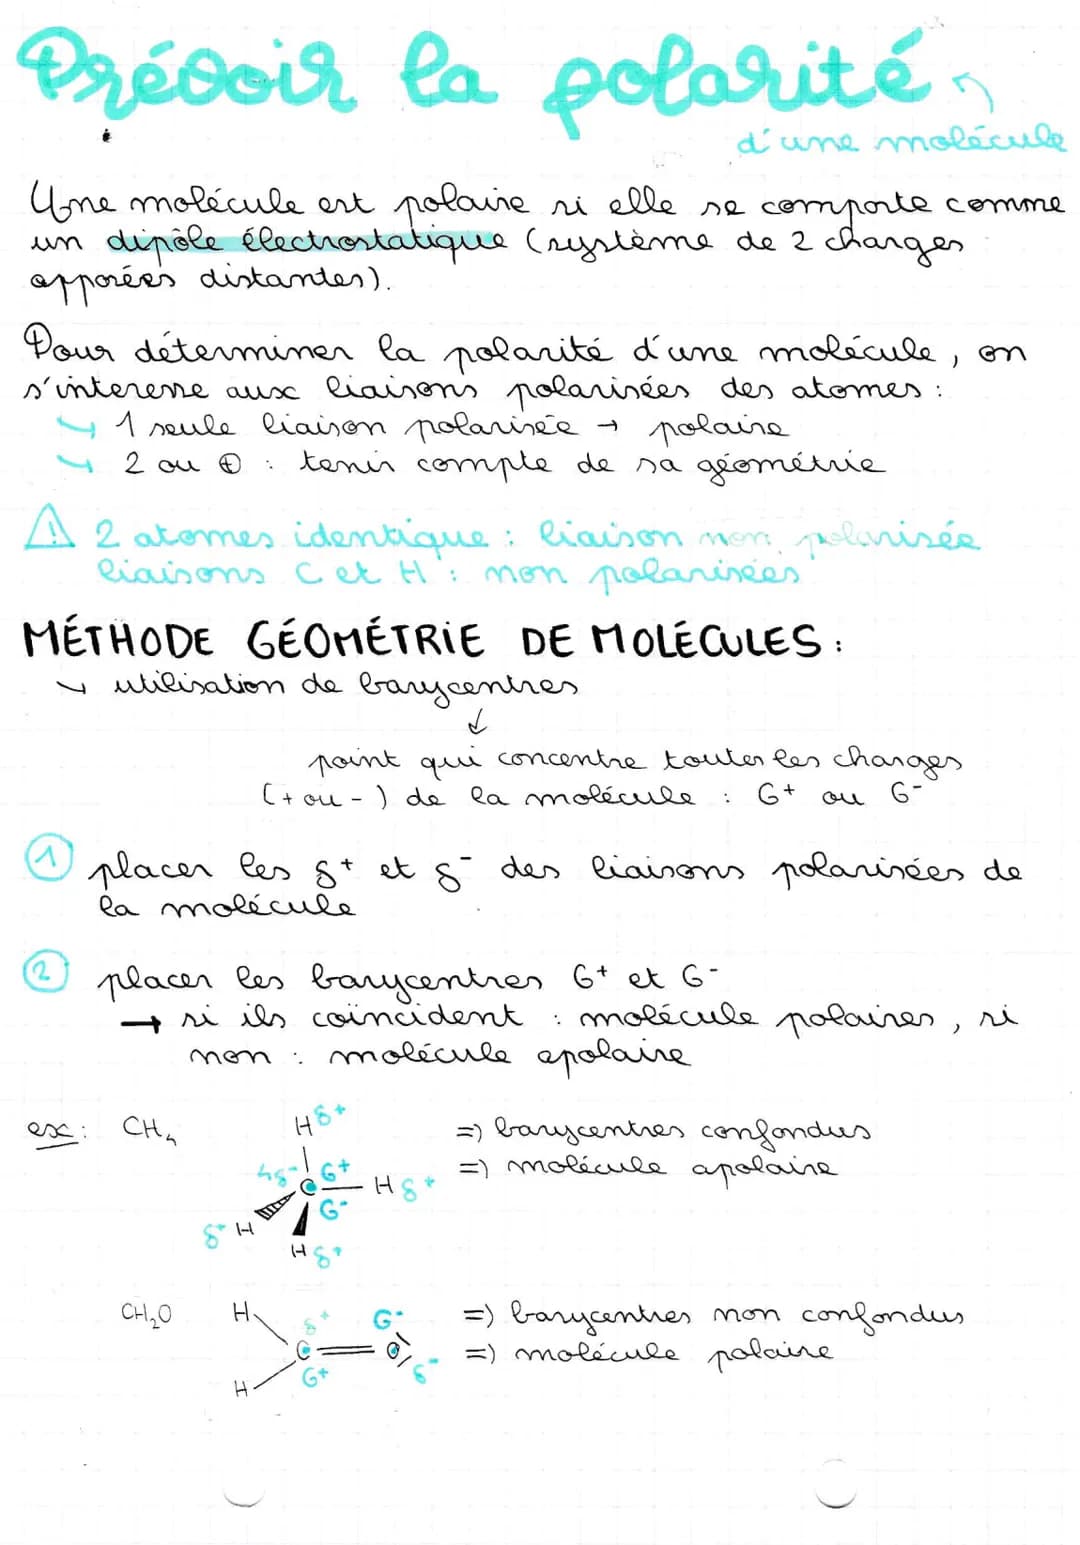 Prévoir la polarité
d'une molécule
Une molécule est polaire si elle se comporte comme
un dipôle électrostatique (système de 2 charges
opposées distantes).
Pour déterminer la polarité d'une molécule, on
s'interesse aux liaisons polarisées des atomes :
↳ 1 seule liaison polarisée → polaire
↳ 2 ou ⊕ : tenir compte de sa géométrie
⚠ 2 atomes identique : liaison non polarisée
liaisons C et H : non polarisées
MÉTHODE GÉOMÉTRIE DE MOLÉCULES :
↳ utilisation de barycentres
↓
point qui concentre toutes les charges
(+ ou -) de la molécule : G+ ou G-
① placer les δ+ et δ- des liaisons polarisées de
la molécule
② placer les barycentres G+ et G-
→ si ils coïncident : molécule polaires, si
non : molécule apolaire
ex : CH₄ H δ+ => barycentres confondus
4δ- G+ => molécule apolaire
C H δ+
G-
δ+ H
H δ+
CH₂O H δ+ G- => barycentres non confondus
C = O δ- => molécule polaire
H G+